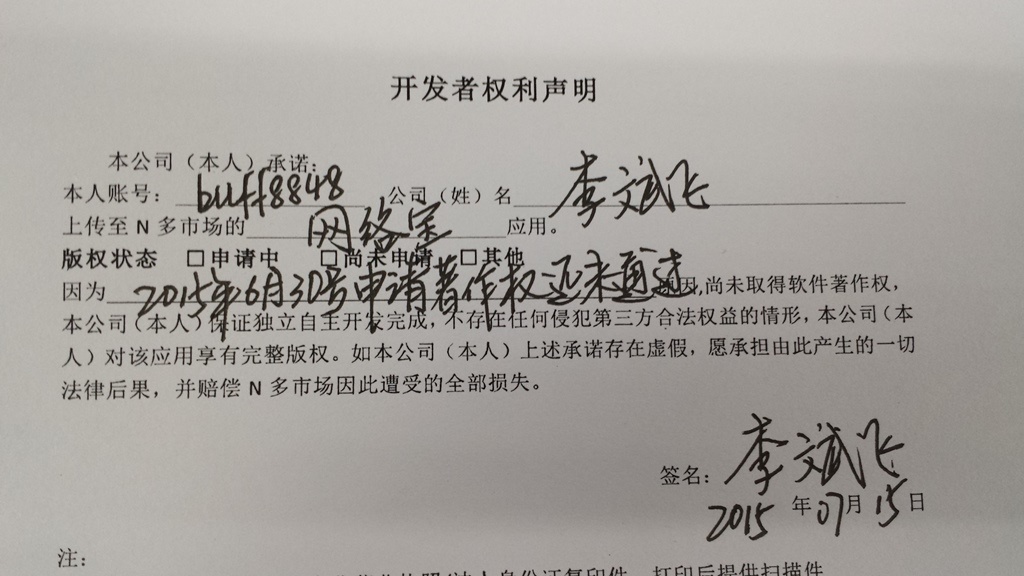 开发者权利声明
本公司（本人）承诺：
本人账号：buff8848 公司（姓）名 李斌飞
上传至 N 多市场的 网络宝 应用。
版权状态 □申请中 □尚未申请 □其他
因为 2015年6月30号申请著作权还未通过 原因,尚未取得软件著作权，
本公司（本人）保证独立自主开发完成，不存在任何侵犯第三方合法权益的情形，本公司（本
人）对该应用享有完整版权。如本公司（本人）上述承诺存在虚假，愿承担由此产生的一切
法律后果，并赔偿 N 多市场因此遭受的全部损失。
签名：李斌飞
2015 年 07 月 15 日
注：
身份证复印件，打印后提供扫描件